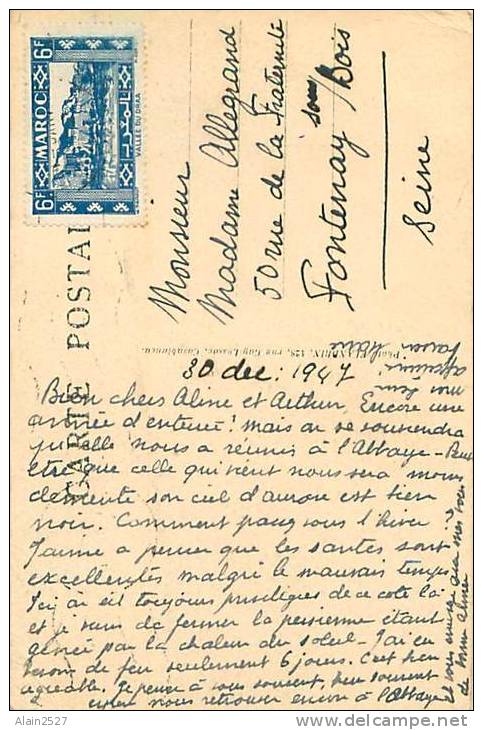 6F MAROC 6F
VALLÉE DU DRAA
CARTE POSTALE
Monsieur
Madame Allegrand
50 rue de la Fraternité
Fontenay sous/Bois
Seine
30 dec: 1947
Bien chers Aline et Arthur, Encore une
année d'enterrée! mais on se souviendra
qu'elle nous a réunis à l'Abbaye - Peut
être que celle qui vient nous sera moins
clémente son ciel d'aurore est bien
noir. Comment passez vous l'hiver?
J'aime à penser que les santés sont
excellentes malgré le mauvais temps
Ici on est toujours privilégiés de ce côté là
et je viens de fermer la persienne étant
gênée par la chaleur du soleil - J'ai eu
besoin de feu seulement 6 jours. C'est bien
agréable. Je pense à vous souvent, bien souvent
nous retrouver encore à l'Abbaye
et vous envoie mes
Alain2527
http://www.delcampe.net